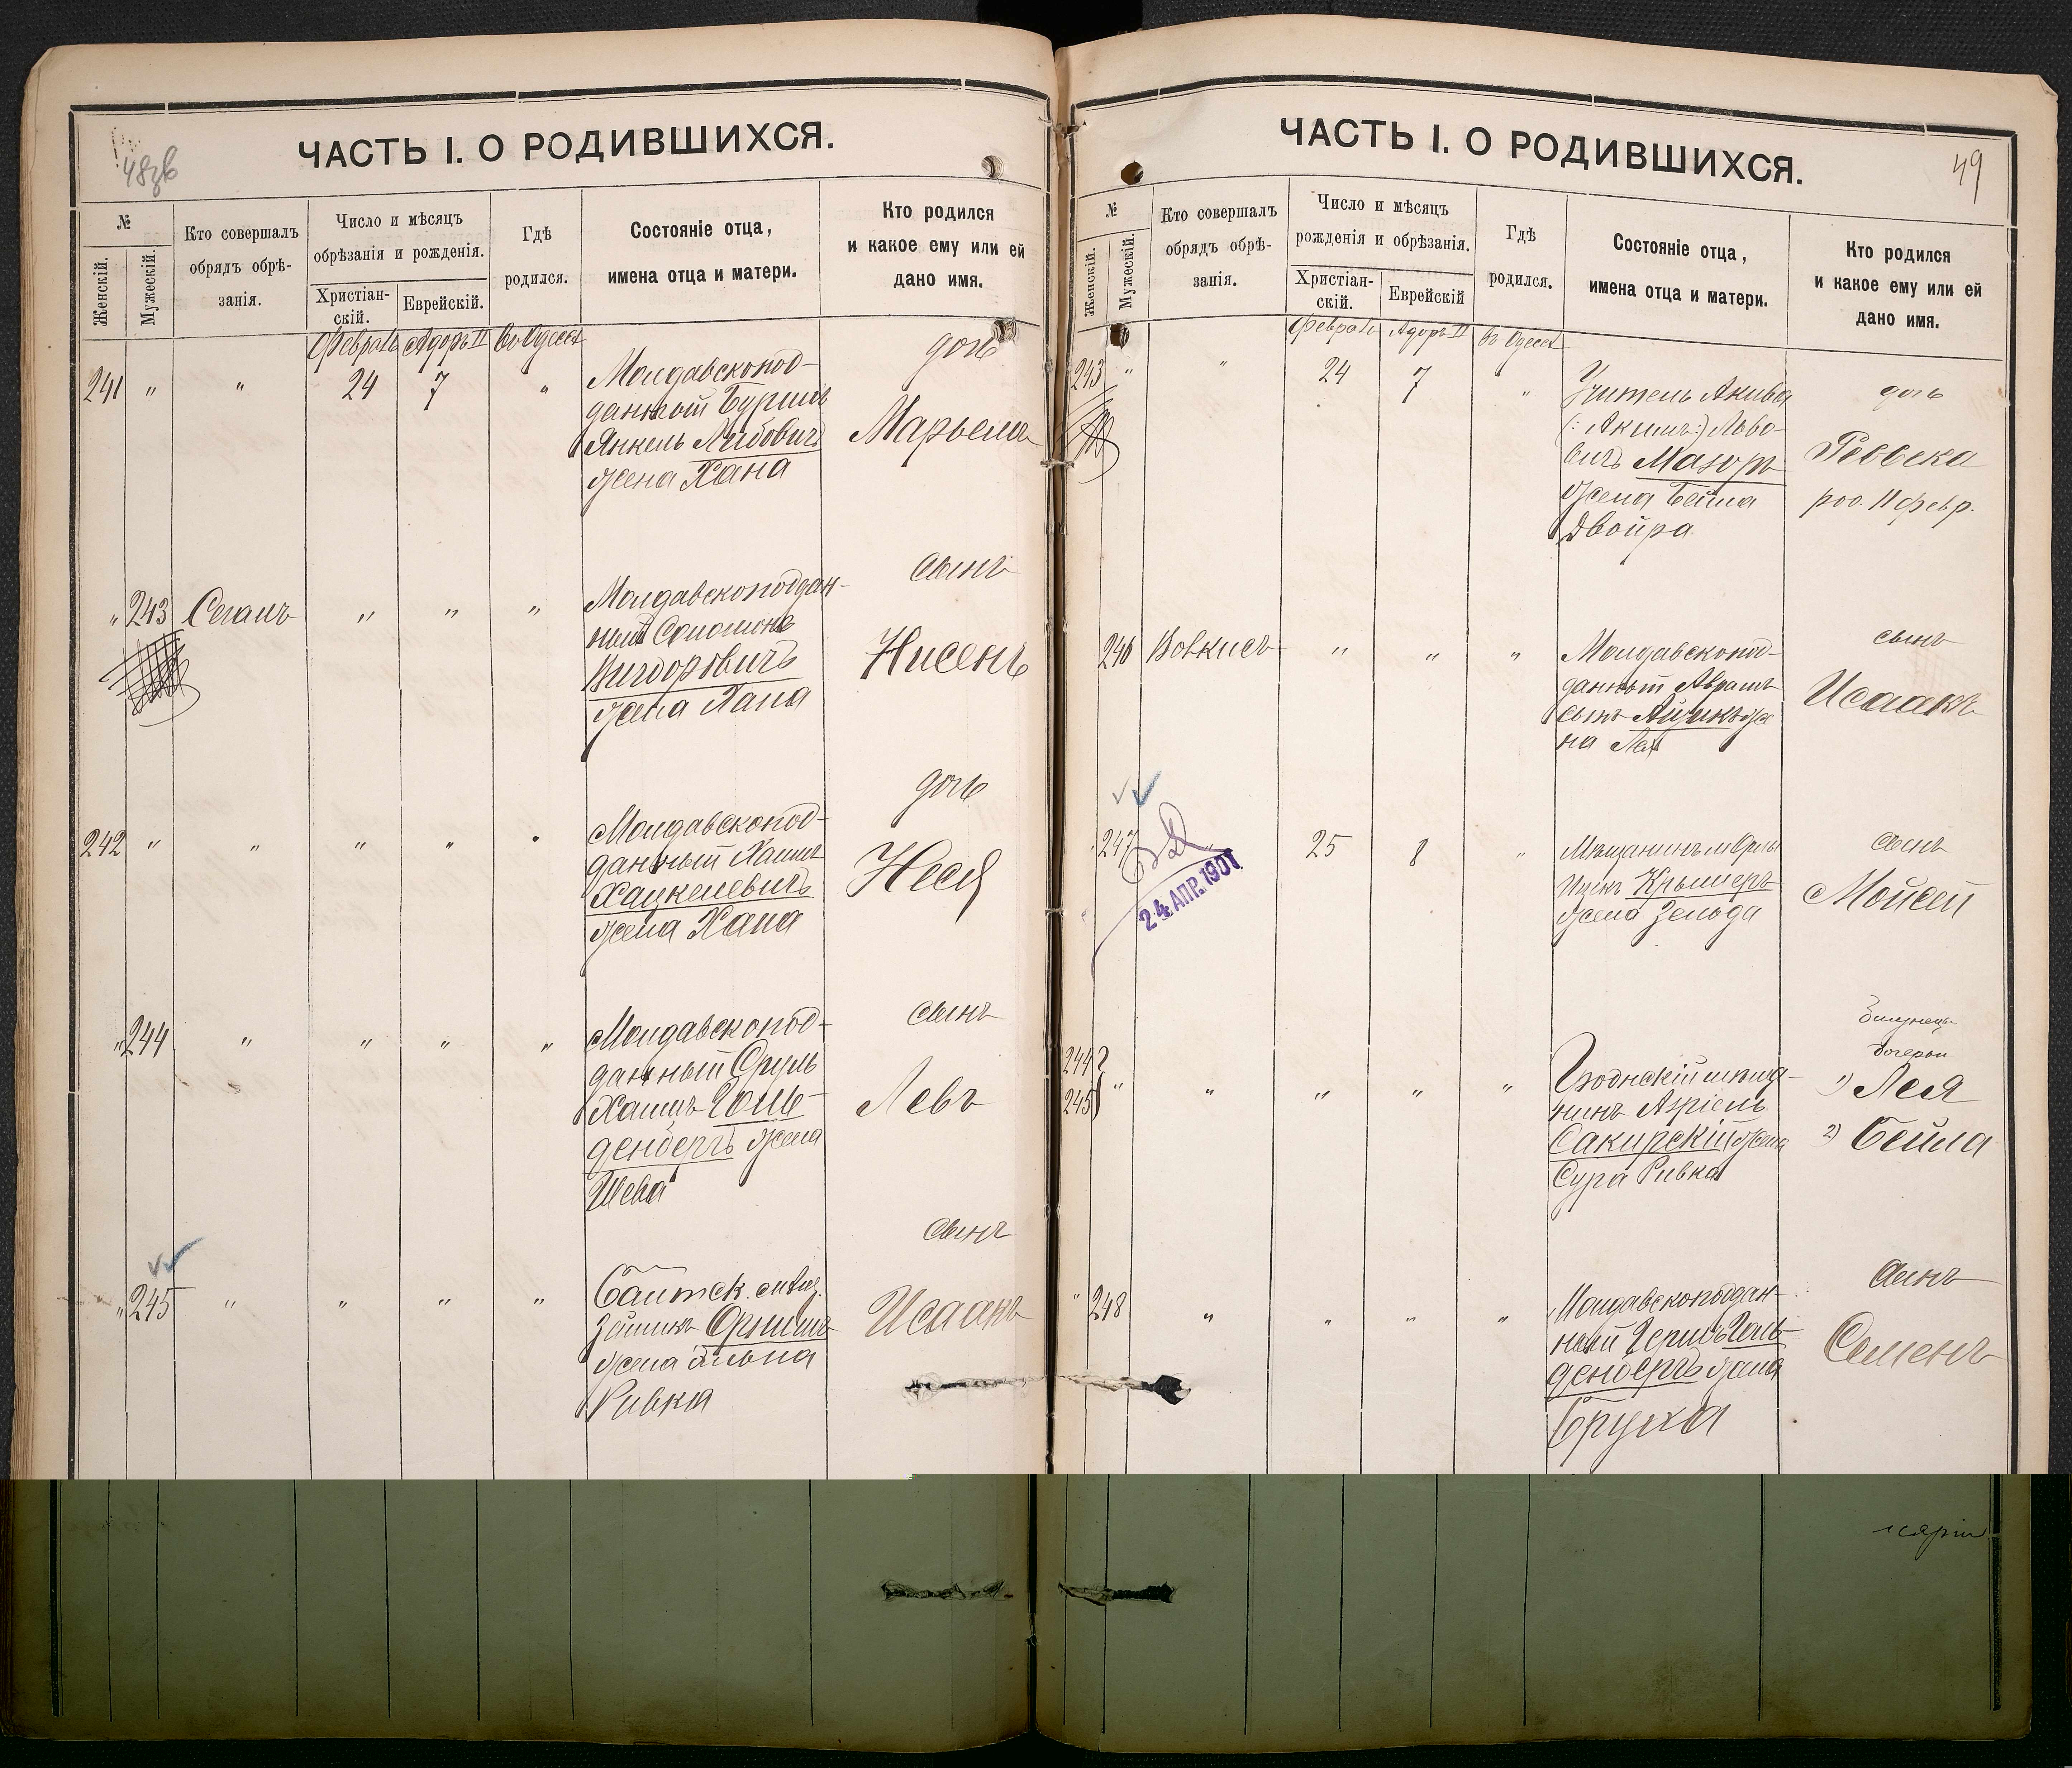 48зв
ЧАСТЬ I. О РОДИВШИХСЯ.
№
Женскій.
Мужескій.
Кто совершалъ
обрядъ обрѣ-
занія.
Число и мѣсяцъ
обрѣзанія и рожденія.
Христіан-
скій.
Еврейскій.
Гдѣ
родился.
Состояніе отца,
имена отца и матери.
Кто родился
и какое ему или ей
дано имя.
Февраль Адоръ II Въ Одессѣ
241 " " 24 7 "
Молдавскопод-
данный
Янкель Лейбовичъ
жена Хана
дочь
Марьемъ
" 243 Сегалъ " " "
Молдавскоподдан-
ный Соломонъ
Вигдоровичъ
жена Хана
сынъ
Нисенъ
242 " " " " "
Молдавскопод-
данный Хаимъ
Хацкелевичъ
жена Хана
дочь
Неся
" 244 " " " "
Молдавскопод-
данный Сруль
Хаимъ Голь-
денбергъ жена
Шева
сынъ
Левъ
" 245 " " " "
жена
Ривка
сынъ
Исаакъ
49
ЧАСТЬ I. О РОДИВШИХСЯ.
№
Женскій.
Мужескій.
Кто совершалъ
обрядъ обрѣ-
занія.
Число и мѣсяцъ
рожденія и обрѣзанія.
Христіан-
скій.
Еврейскій
Гдѣ
родился.
Состояніе отца,
имена отца и матери.
Кто родился
и какое ему или ей
дано имя.
Февраль Адоръ II Въ Одессѣ
243 " " 24 7 "
Учитель Акива
(: Акимъ:) Льво-
вичъ Мазоръ
жена Бейла
Двойра
дочь
Ревека
род. 11 февр.
246 Вовкисъ " " "
Молдавскопод-
данный Авраамъ
жe
на Лея
сынъ
Исаакъ
247 25 8 "
24 АПР. 1901
Мѣщанинъ
Ицекъ Крымеръ
жена Зельда
сынъ
Мойсей
244
245 " " " " "
Гродненскій мѣща-
нинъ Азріель
Сакирскій жена
Сура Ривка
дочери
1) Лея
2) Бейла
" 248 " " " "
Молдавскоподдан-
ный Гершъ Голь-
денбергъ жена
Бруха
сынъ
Семенъ